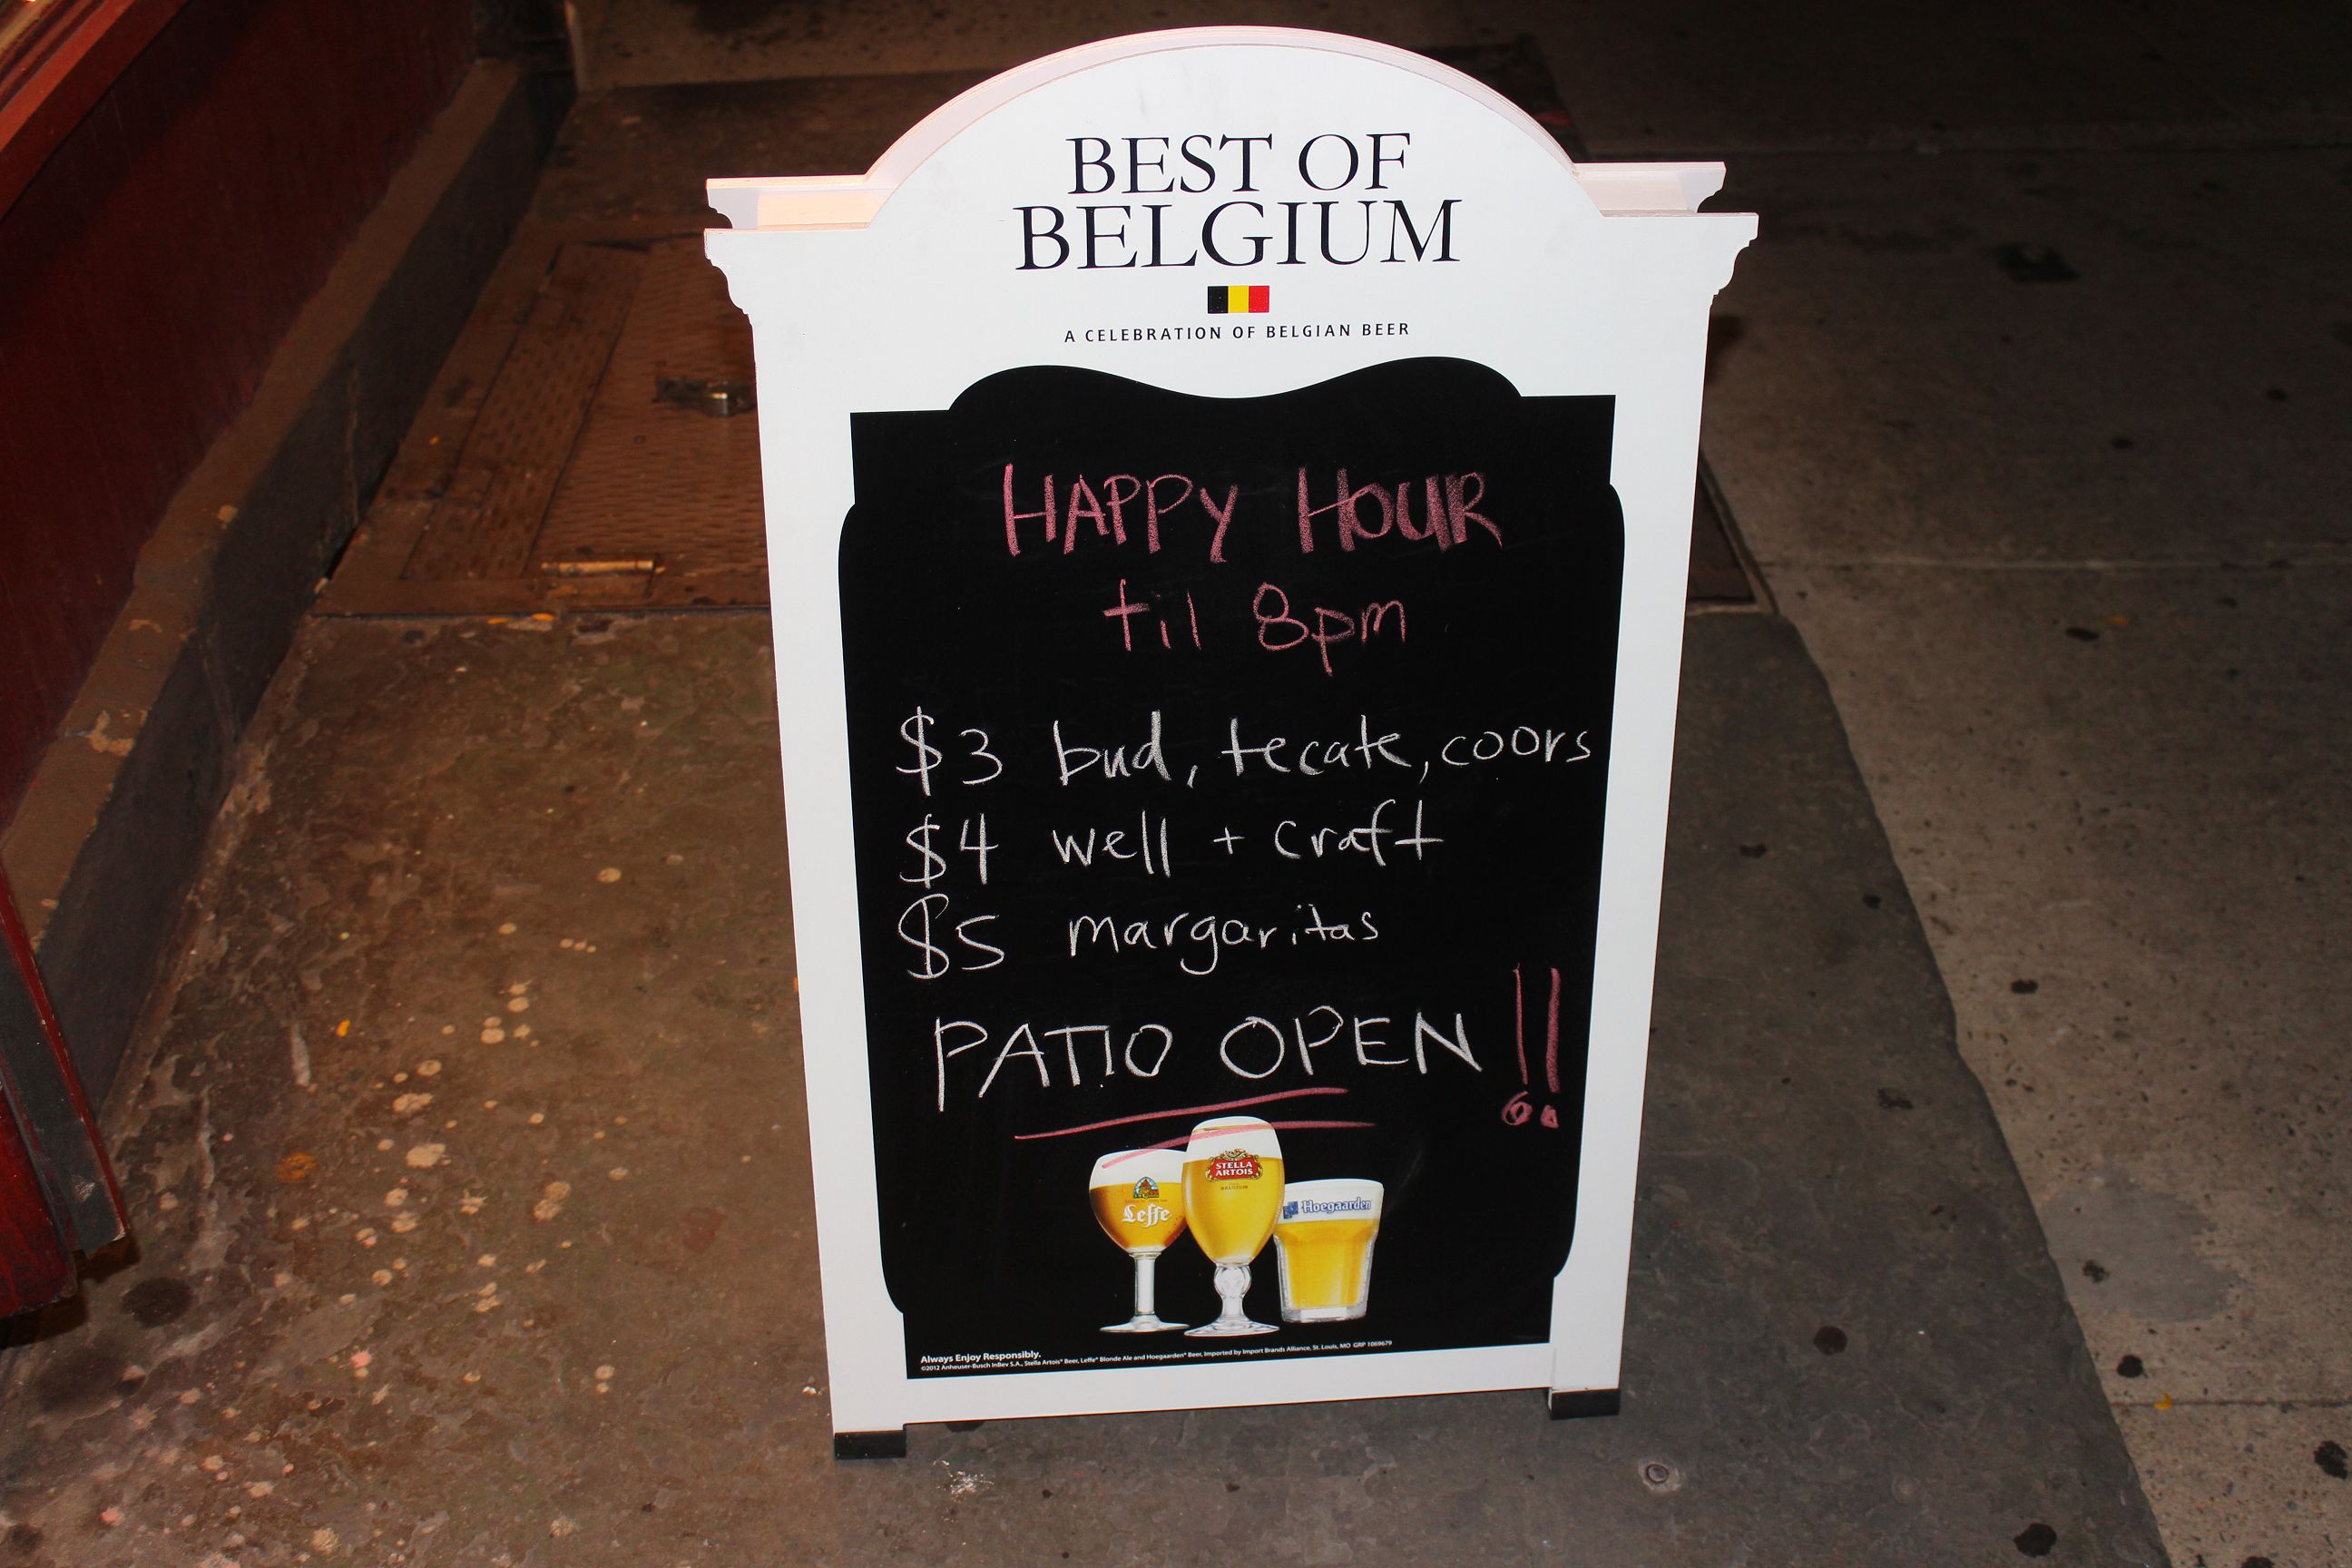 BEST OF
BELGIUM
A CELEBRATION OF BELGIAN BEER
HAPPY HOUR
til 8pm
$3 bud, tecate, coors
$4 well + craft
$5 margaritas
PATIO OPEN!!
STELLA
ARTOIS
Leffe
Hoegaarden
Always Enjoy Responsibly.
©2012 Anheuser-Busch InBev S.A., Stella Artois® Beer, Leffe® Blonde Ale and Hoegaarden® Beer, Imported by Import Brands Alliance, St. Louis, MO GRP 1069679